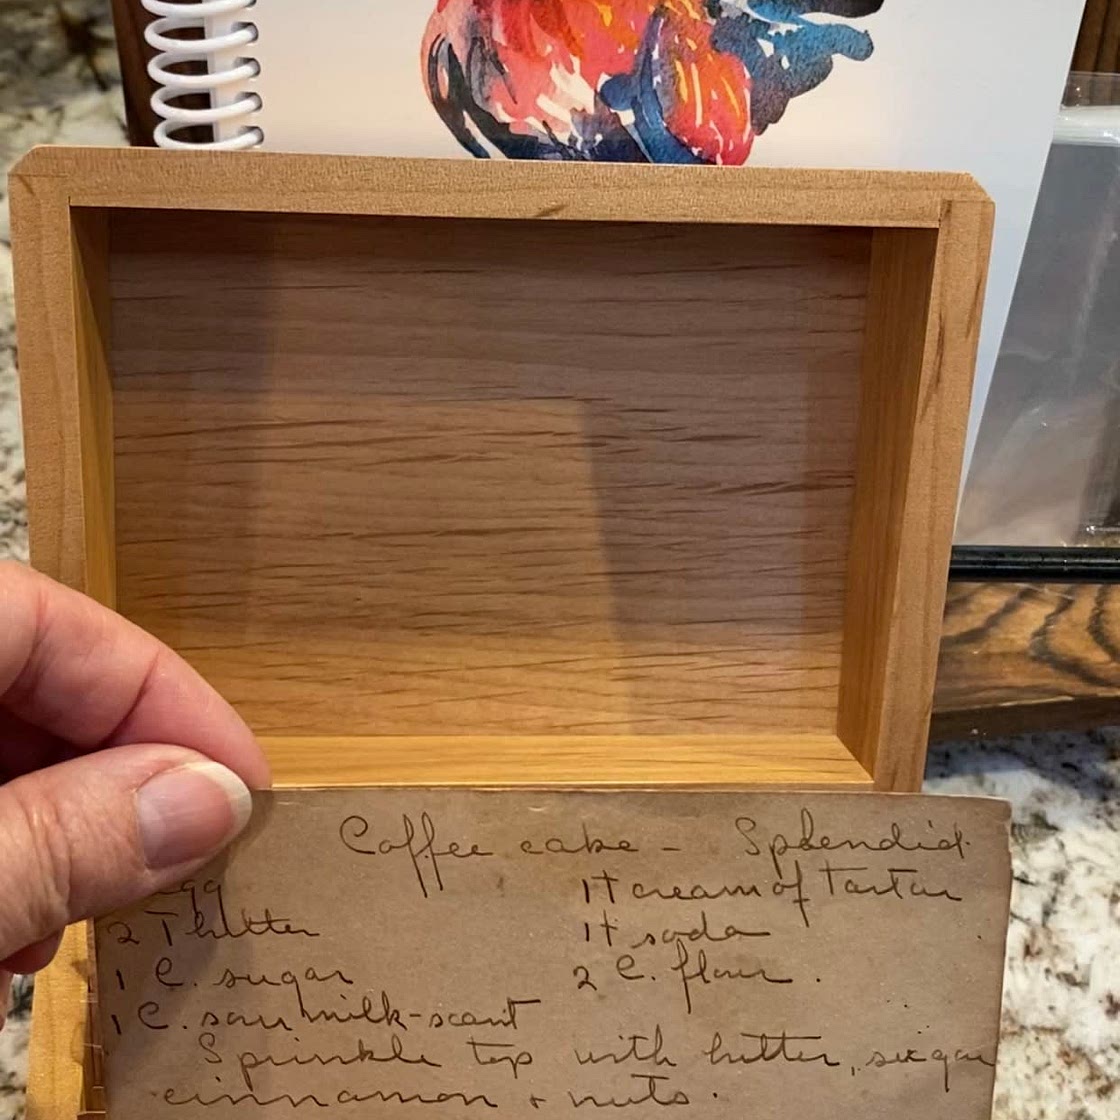 Coffee cake - Splendid.
egg
2 T butter
1 C. sugar
1 C. sour milk-scant
1 t cream of tartar
1 t soda
2 C. flour.
Sprinkle top with butter, sugar
cinnamon + nuts.